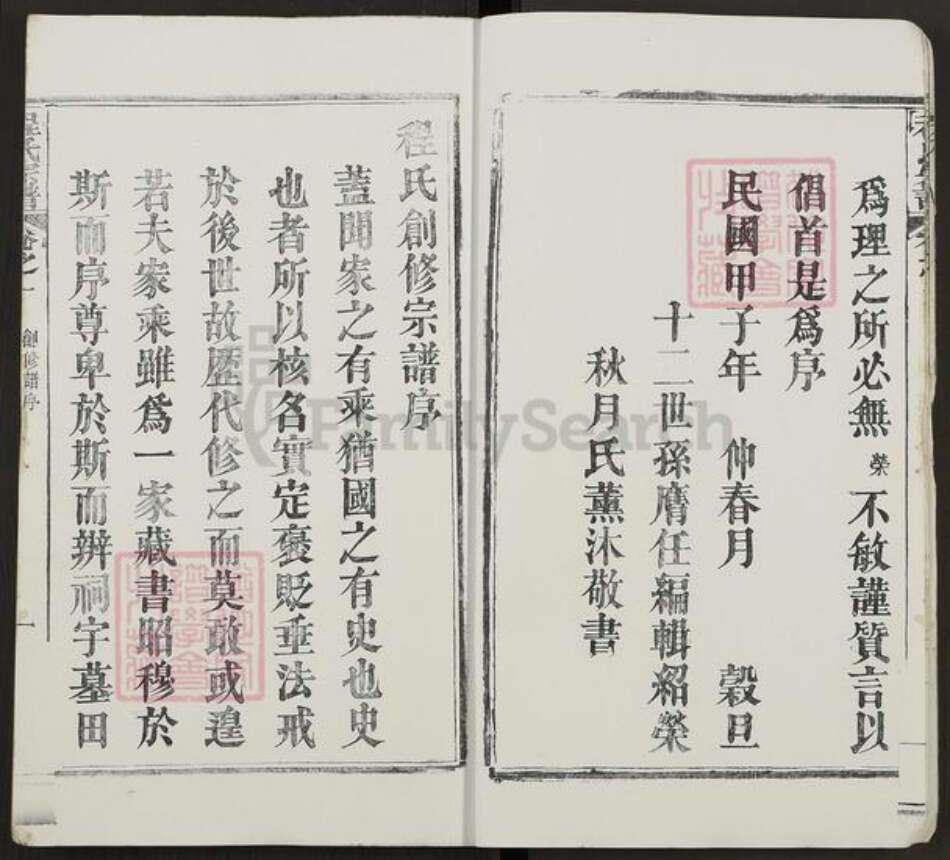 爲理之所必無榮不敏謹質言以
倡首是爲序
民國甲子年 仲春月 穀旦
十二世孫膺任編輯紹榮
秋月氏薰沐敬書
程氏創修宗譜序
蓋聞家之有乘猶國之有史也史
也者所以核名實定褒貶垂法戒
於後世故歷代修之而莫敢或遑
若夫家乘雖爲一家藏書昭穆於
斯而序尊卑於斯而辨祠宇墓田
程氏宗譜 卷之一 創修譜序 一
FamilySearch